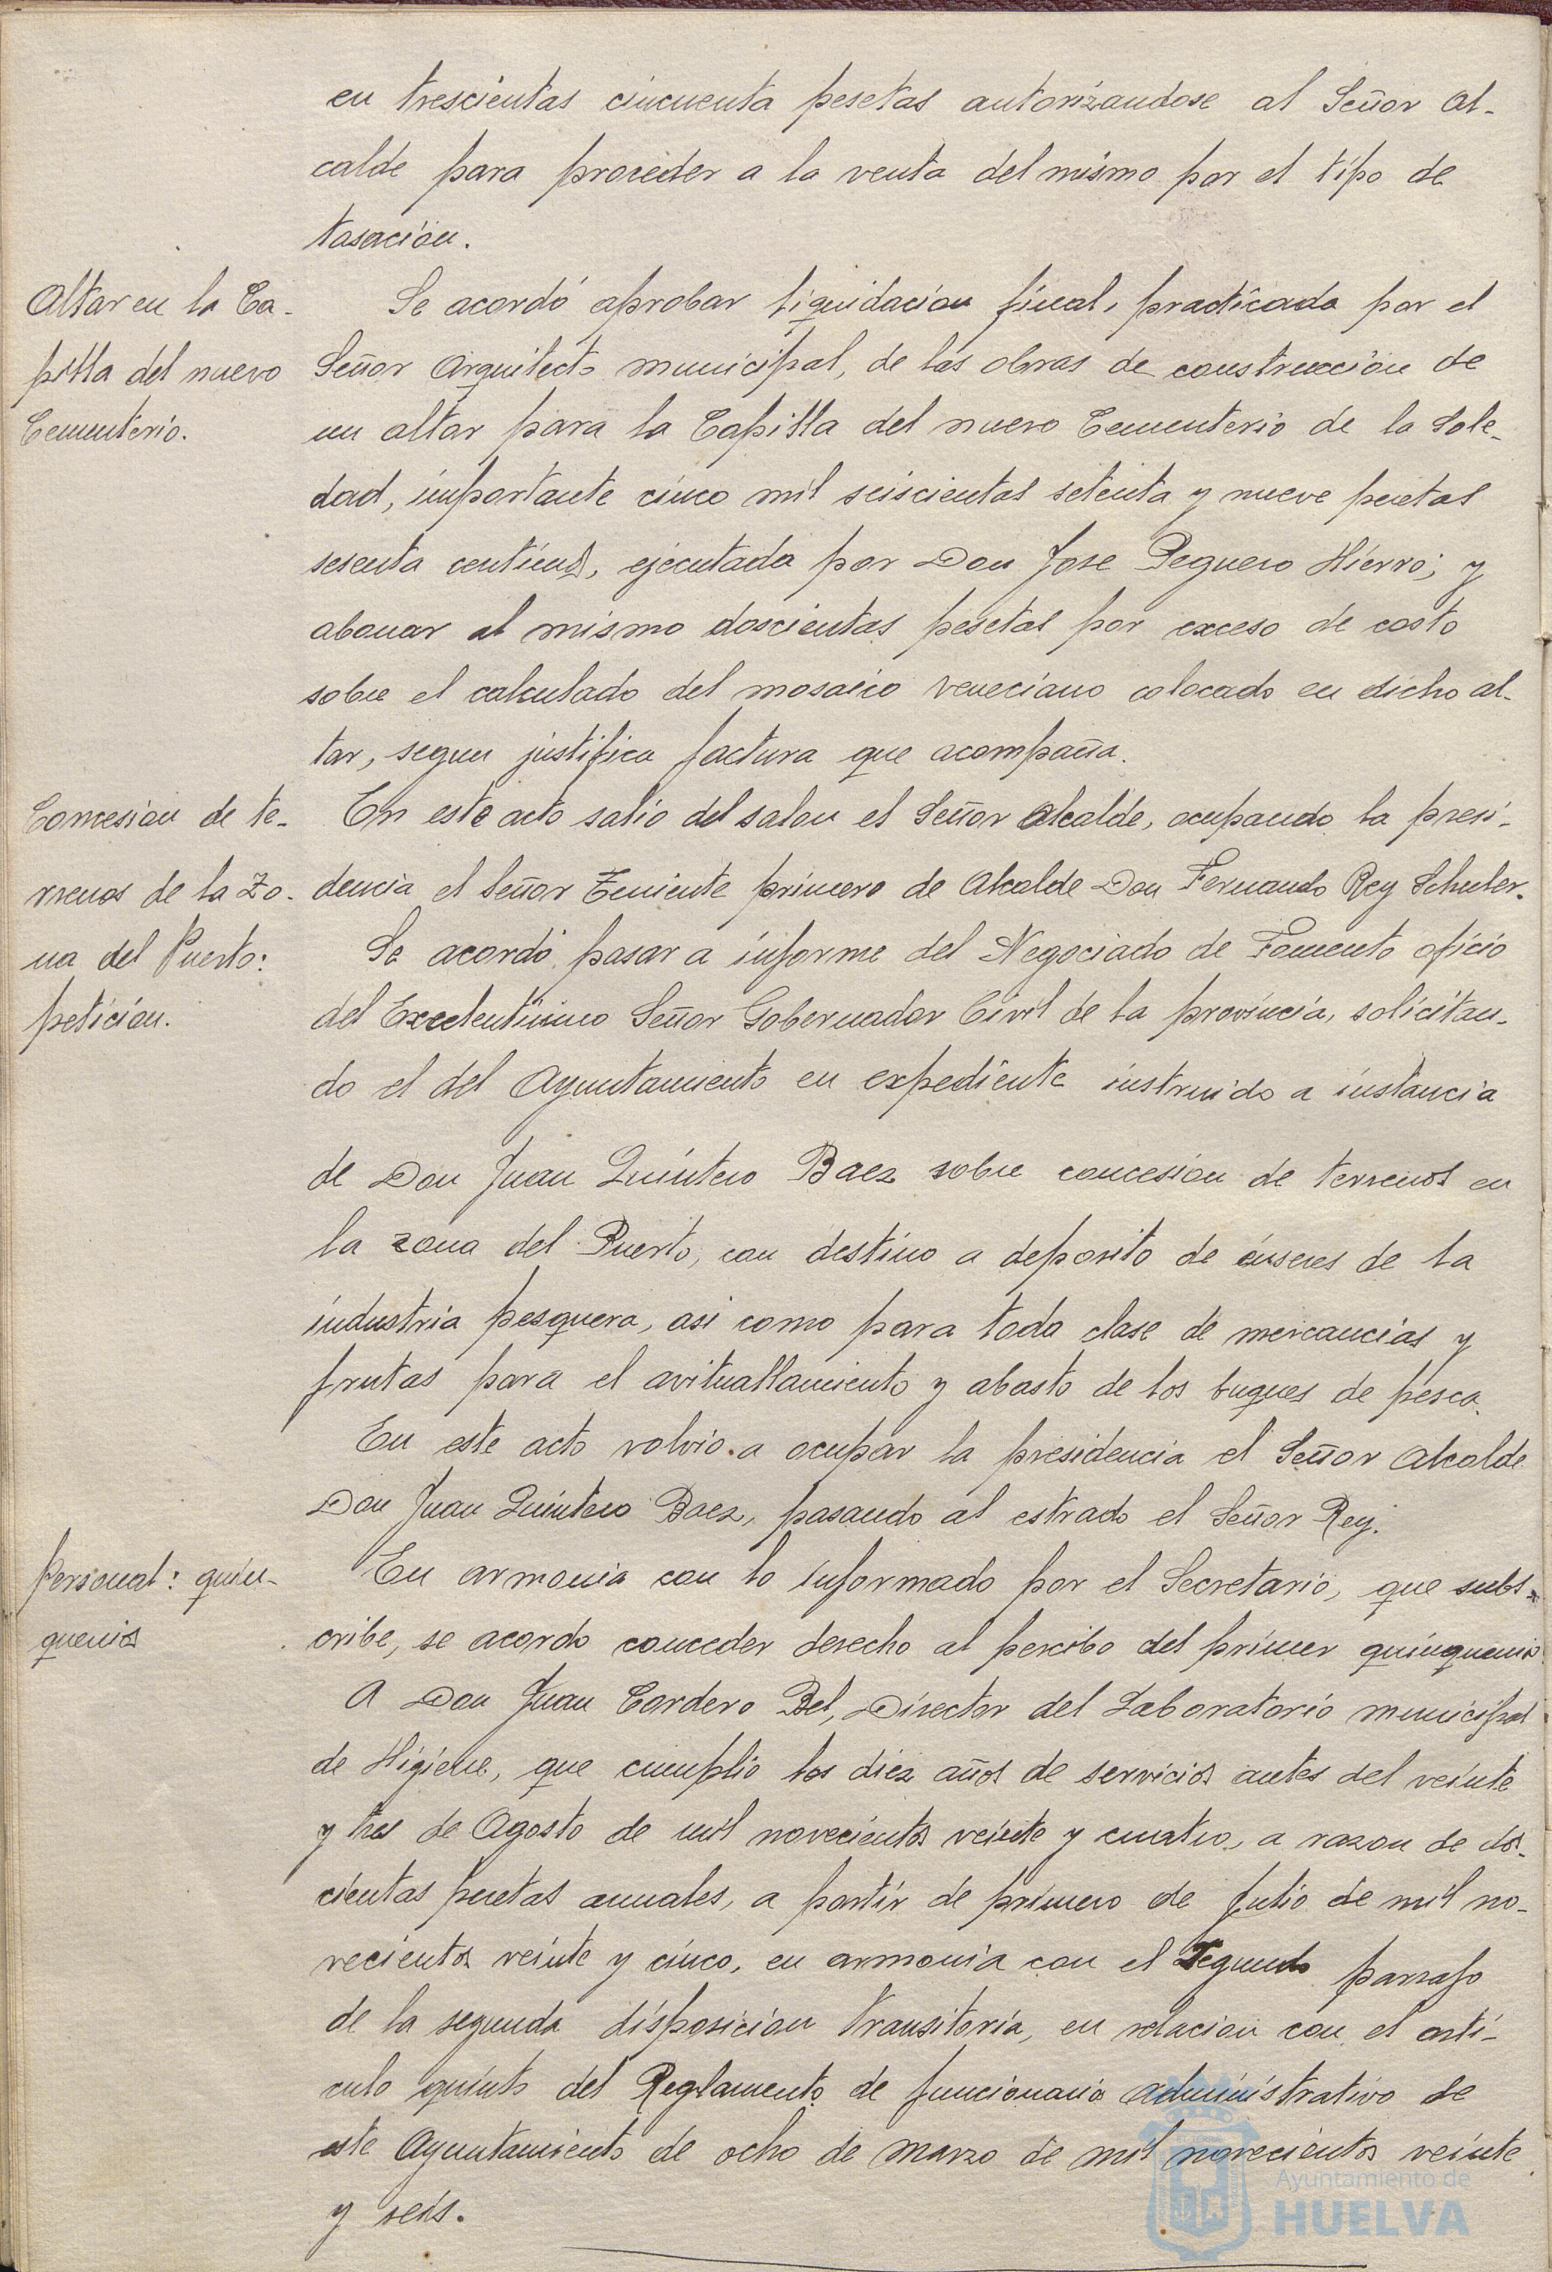 en trescientas cincuenta pesetas autorizandose al Señor Al-
calde para proceder a la venta del mismo por el tipo de
tasacion.
Altar en la Ca-
pilla del nuevo
Cementerio.
Se acordó aprobar liquidacion final, practicada por el
Señor Arquitecto municipal, de las obras de construccion de
un altar para la Capilla del nuevo Cementerio de la Sole-
dad, importante cinco mil seiscientas setenta y nueve pesetas
sesenta centimos, ejecutada por Don Jose Peguero Hierro; y
abonar al mismo doscientas pesetas por exceso de costo
sobre el calculado del mosaico veneciano colocado en dicho al-
tar, segun justifica factura que acompaña.
Concesion de te-
rrenos de la Zo-
na del Puerto:
peticion.
En este acto salio del salon el Señor Alcalde, ocupando la presi-
dencia el Señor Teniente primero de Alcalde Don Fernando Rey Schuler.
Se acordó pasar a informe del Negociado de Fomento oficio
del Excelentisimo Señor Gobernador Civil de la provincia, solicitan-
do el del Ayuntamiento en expediente instruido a instancia
de Don Juan Quintero Baez sobre concesion de terrenos en
la zona del Puerto, con destino a deposito de enseres de la
industria pesquera, asi como para toda clase de mercancias y
frutas para el avituallamiento y abasto de los buques de pesca.
En este acto volvio a ocupar la presidencia el Señor Alcalde
Don Juan Quintero Baez, pasando al estrado el Señor Rey.
Personal: quin-
quenios
En armonia con lo informado por el Secretario, que subs-
cribe, se acordo conceder derecho al percibo del primer quinquenio
A Don Juan Cordero Bel, Director del Laboratorio municipal
de Higiene, que cumplio los diez años de servicios antes del veinte
y tres de Agosto de mil novecientos veinte y cuatro, a razon de dos-
cientas pesetas anuales, a partir de primero de Julio de mil no-
vecientos veinte y cinco, en armonia con el Segundo parrafo
de la segunda disposicion transitoria, en relacion con el arti-
culo quinto del Reglamento de funcionario administrativo de
este Ayuntamiento de ocho de marzo de mil novecientos veinte
y seis.
Ayuntamiento de
HUELVA